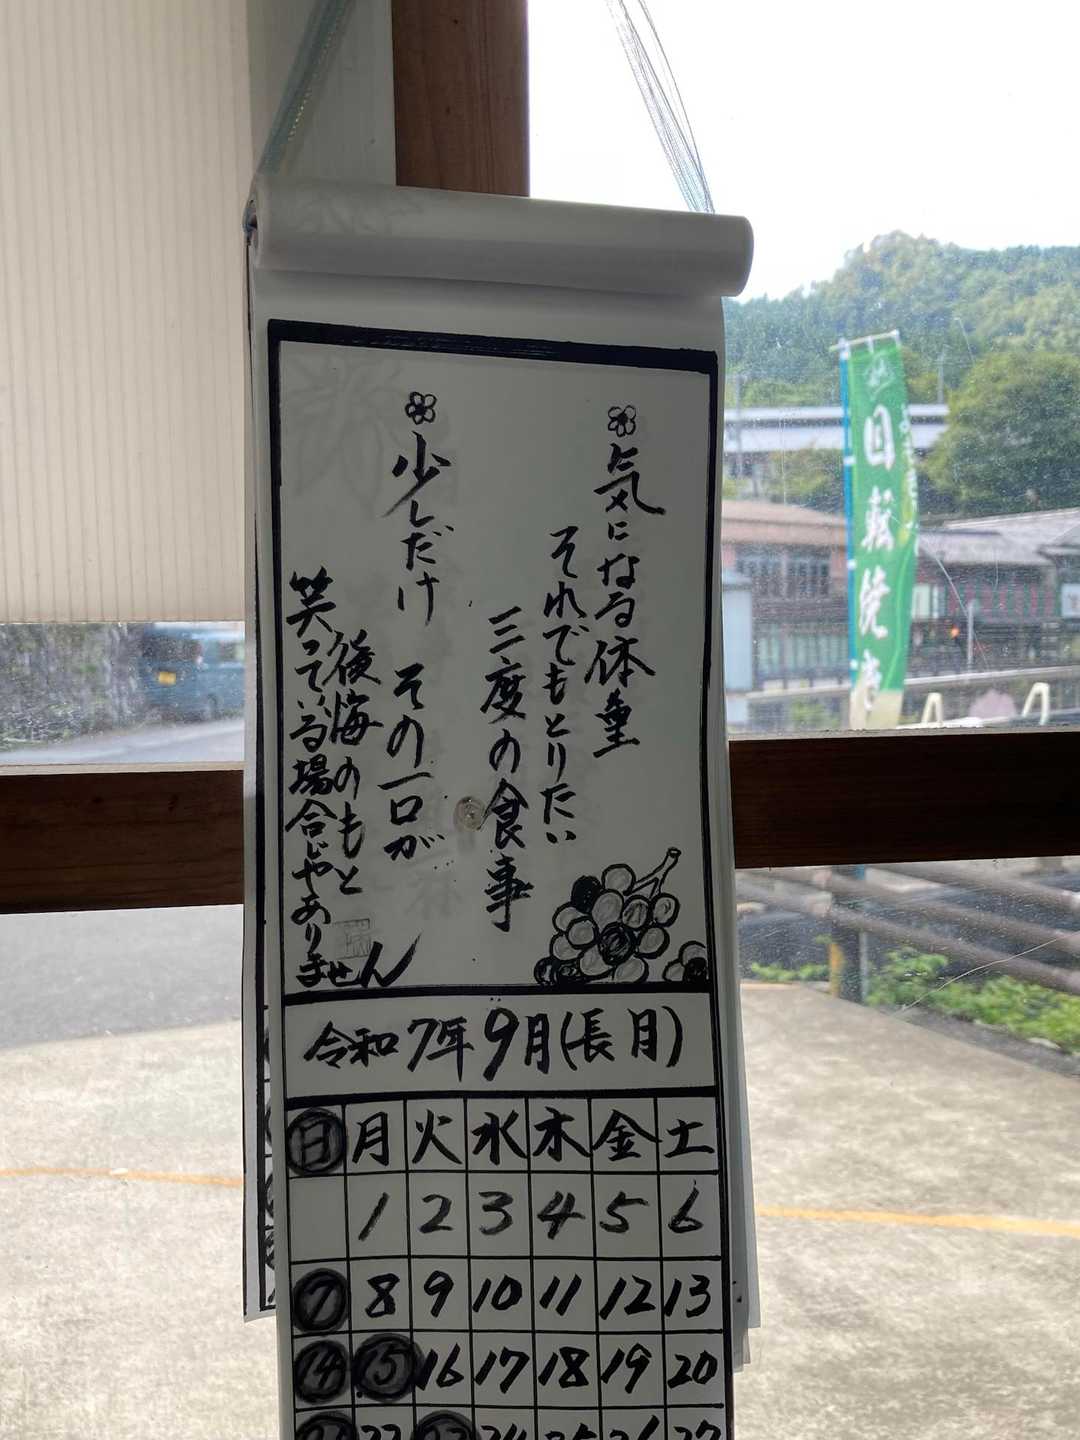 気になる体重
それでもとりたい
三度の食事
少しだけ その一口が
後悔のもと
笑っている場合じゃありません
令和7年9月(長月)
日 月 火 水 木 金 土
1 2 3 4 5 6
7 8 9 10 11 12 13
14 15 16 17 18 19 20
21 22 23 24 25 26 27
日転焼き